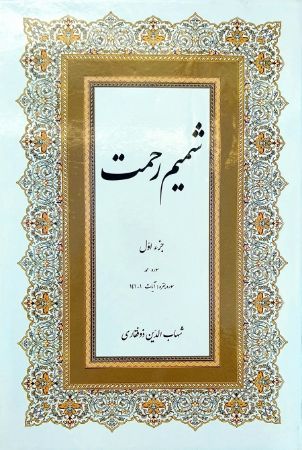 شمیم رحمت
جزء اول
سوره حمد
سوره بقره: آیات ۱-۱۴۱
شهاب الدین ذوفقاری